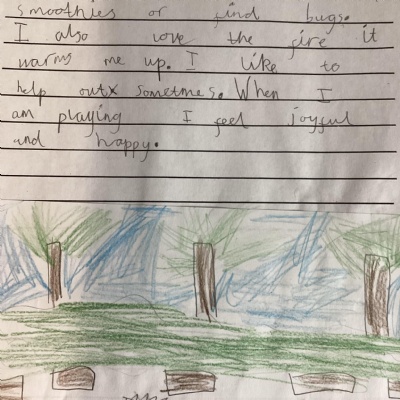 smoothies or find bugs.
I also love the fire it
warms me up. I like to
help out sometmes. When I
am playing I feel joyful
and happy.